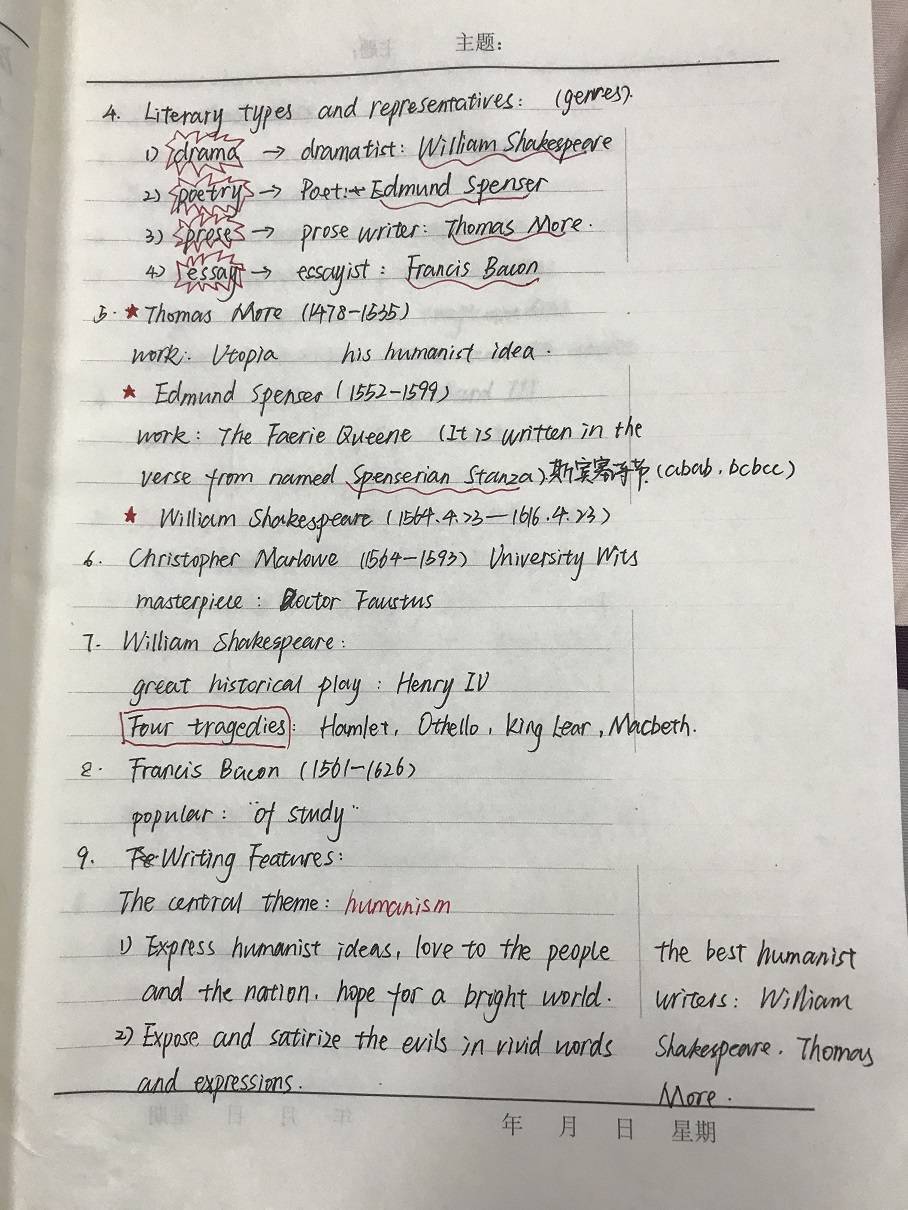 主题:
4. Literary types and representatives: (genres).
1) drama → dramatist: William Shakespeare
2) poetry → Poet: Edmund Spenser
3) prose → prose writer: Thomas More.
4) essay → essayist: Francis Bacon
5. ★ Thomas More (1478-1535)
work: Utopia his humanist idea.
★ Edmund Spenser (1552-1599)
work: The Faerie Queene (It is written in the
verse from named Spenserian Stanza).斯宾塞诗节.(abab.bcbcc)
★ William Shakespeare (1564.4.23—1616.4.23)
6. Christopher Marlowe (1564-1593) University Wits
masterpiece: Doctor Faustus
7. William Shakespeare:
great historical play: Henry IV
Four tragedies: Hamlet, Othello, King Lear, Macbeth.
8. Francis Bacon (1561-1626)
popular: "of study"
9. Writing Features:
The central theme: humanism
1) Express humanist ideas, love to the people
and the nation. hope for a bright world.
2) Expose and satirize the evils in vivid words
and expressions.
the best humanist
writers: William
Shakespeare. Thomas
More.
年 月 日 星期